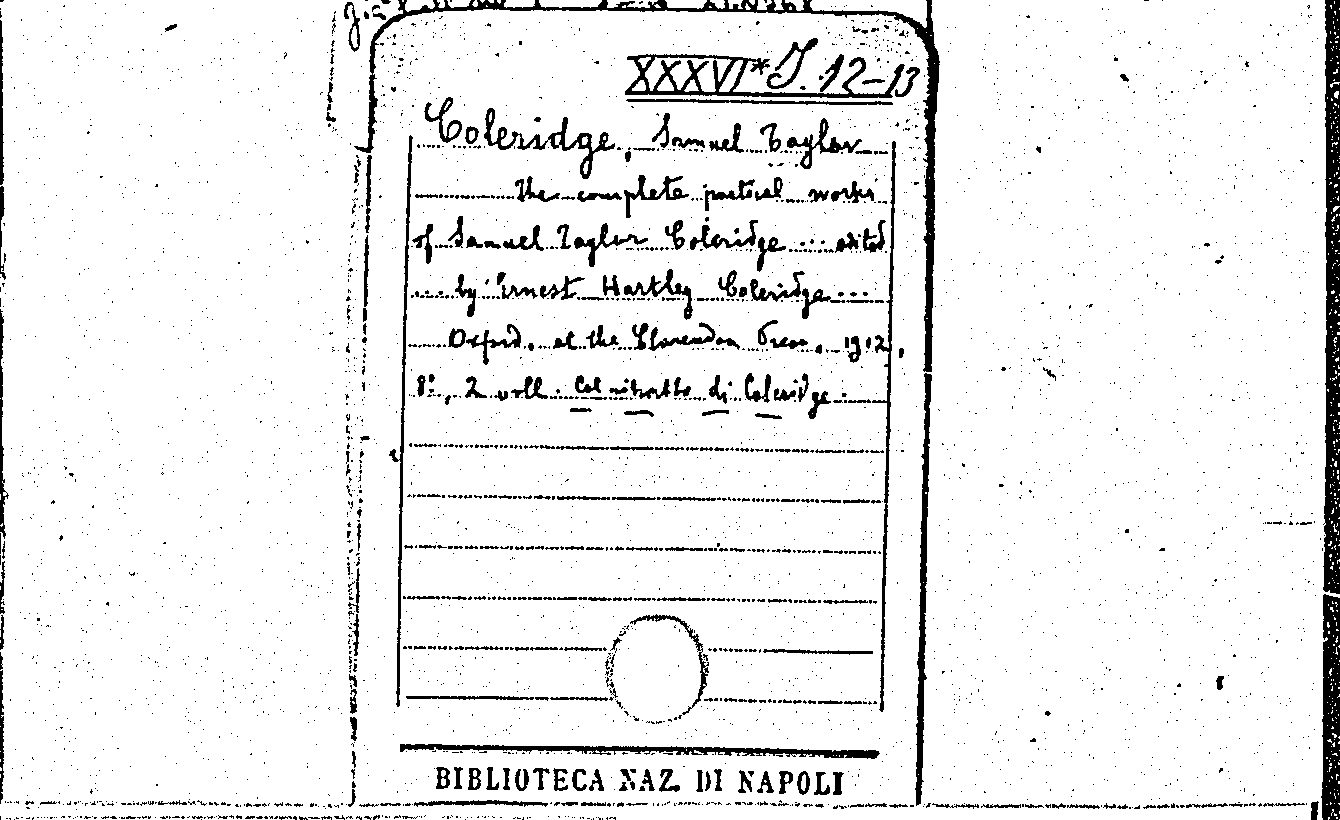 XXXVI* J. 12-13
Coleridge, Samuel Taylor
The complete poetical works
of Samuel Taylor Coleridge ... edited
... by Ernest Hartley Coleridge ...
Oxford, at the Clarendon Press, 1912,
8º, 2 voll. Col ritratto di Coleridge.
BIBLIOTECA NAZ. DI NAPOLI